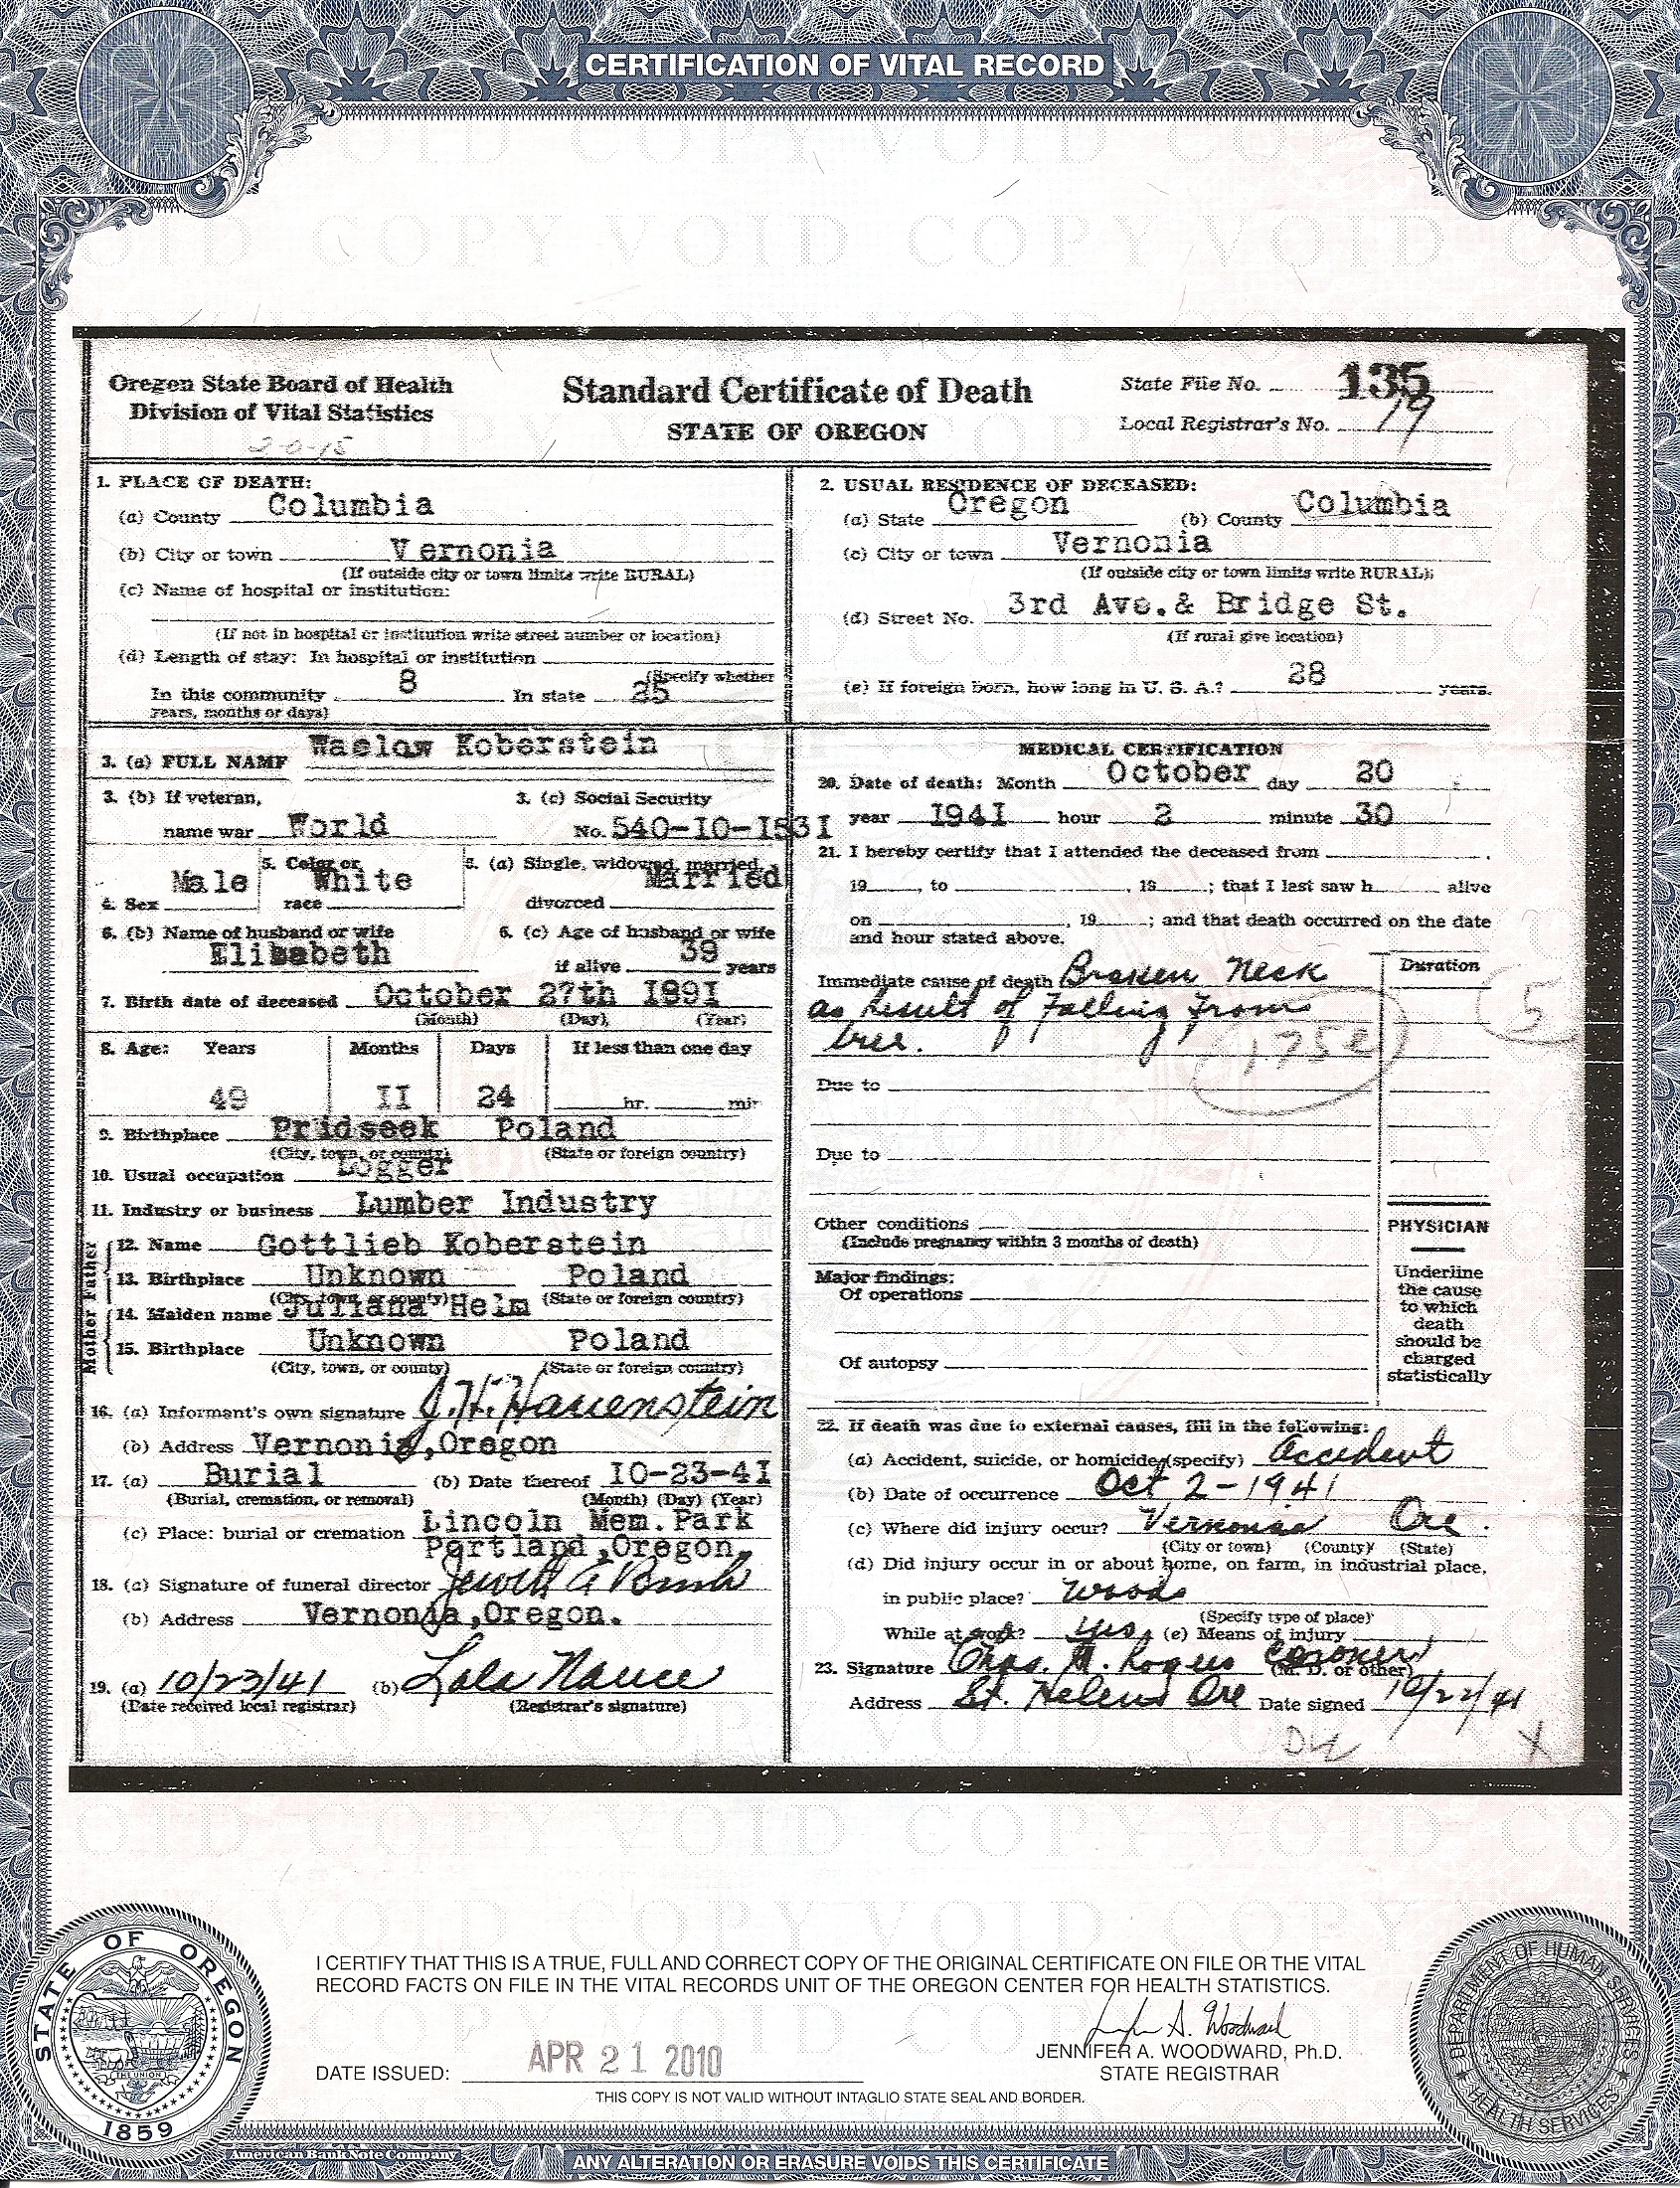 CERTIFICATION OF VITAL RECORD
Oregon State Board of Health
Division of Vital Statistics
2-0-15
Standard Certificate of Death
STATE OF OREGON
State File No. 135
Local Registrar's No. 19
1. PLACE OF DEATH:
(a) County Columbia
(b) City or town Vernonia
(If outside city or town limits write RURAL)
(c) Name of hospital or institution:
(If not in hospital or institution write street number or location)
(d) Length of stay: In hospital or institution
(Specify whether
In this community 8 In state 25
years, months or days)
2. USUAL RESIDENCE OF DECEASED:
(a) State Oregon (b) County Columbia
(c) City or town Vernonia
(If outside city or town limits write RURAL)
(d) Street No. 3rd Ave.& Bridge St.
(If rural give location)
(e) If foreign born, how long in U. S. A.? 28 years.
3. (a) FULL NAME Waslow Koberstein
3. (b) If veteran, 3. (c) Social Security
name war World No. 540-I0-I53I
4. Sex Male 5. Color or race White 6. (a) Single, widowed, married, divorced Married
6. (b) Name of husband or wife 6. (c) Age of husband or wife
Elisabeth if alive 39 years
7. Birth date of deceased October 27th I89I
(Month) (Day) (Year)
8. Age: Years Months Days If less than one day
49 II 24 hr. min
9. Birthplace Pridseek Poland
(City, town, or county) (State or foreign country)
10. Usual occupation Logger
11. Industry or business Lumber Industry
Father
12. Name Gottlieb Koberstein
13. Birthplace Unknown Poland
(City, town, or county) (State or foreign country)
Mother
14. Maiden name Juliana Helm
15. Birthplace Unknown Poland
(City, town, or county) (State or foreign country)
16. (a) Informant's own signature J. H. Hauenstein
(b) Address Vernonia,Oregon
17. (a) Burial (b) Date thereof I0-23-4I
(Burial, cremation, or removal) (Month) (Day) (Year)
(c) Place: burial or cremation Lincoln Mem. Park
Portland,Oregon.
18. (a) Signature of funeral director Jewell A Bush
(b) Address Vernonia,Oregon.
19. (a) 10/23/41 (b) Lola Nance
(Date received local registrar) (Registrar's signature)
MEDICAL CERTIFICATION
20. Date of death: Month October day 20
year I94I hour 2 minute 30
21. I hereby certify that I attended the deceased from
19 , to , 19 ; that I last saw h alive
on , 19 ; and that death occurred on the date
and hour stated above.
Immediate cause of death Broken Neck
as result of Falling From
tree.
Duration
175e
5
Due to
Due to
Other conditions
(Include pregnancy within 3 months of death)
Major findings:
Of operations
Of autopsy
PHYSICIAN
Underline
the cause
to which
death
should be
charged
statistically
22. If death was due to external causes, fill in the following:
(a) Accident, suicide, or homicide (specify) accident
(b) Date of occurrence Oct 2-1941
(c) Where did injury occur? Vernonia Ore.
(City or town) (County) (State)
(d) Did injury occur in or about home, on farm, in industrial place,
in public place? Woods
(Specify type of place)
While at work? yes (e) Means of injury
23. Signature Chas. A. Rogers Coroner
(M. D. or other)
Address St. Helens Ore Date signed 10/22/41
X
I CERTIFY THAT THIS IS A TRUE, FULL AND CORRECT COPY OF THE ORIGINAL CERTIFICATE ON FILE OR THE VITAL
RECORD FACTS ON FILE IN THE VITAL RECORDS UNIT OF THE OREGON CENTER FOR HEALTH STATISTICS.
DATE ISSUED: APR 21 2010
JENNIFER A. WOODWARD, Ph.D.
STATE REGISTRAR
THIS COPY IS NOT VALID WITHOUT INTAGLIO STATE SEAL AND BORDER.
STATE OF OREGON
THE UNION
1859
DEPARTMENT OF HUMAN SERVICES
HEALTH SERVICES
American Bank Note Company
ANY ALTERATION OR ERASURE VOIDS THIS CERTIFICATE